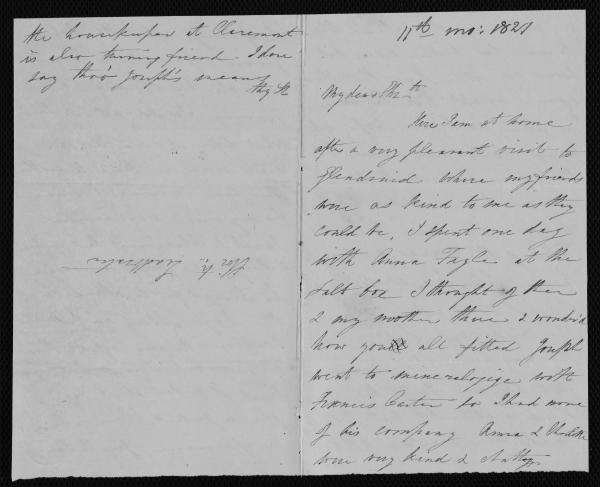 the housekeeper at Claremont
is also turning friend I dare
say thro' Joseph's means
thy
11th mo: 1827
My dear Eth
Here I am at home
after a very pleasant visit to
where my friends
were as kind to me as they
could be, I spent one day
with Anna at the
Salt box I thought of thee
& my mother there & wonder'd
how you all fitted Joseph
went to mineralogize with
Francis Carter so I had none
of his company Anna & Charlotte
were very kind & chatty